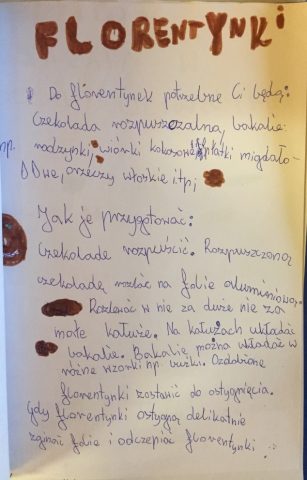 FLORENTYNKI
Do florentynek potrzebne Ci będą:
Czekolada rozpuszczalna, bakalie:
np. rodzynki, wiórki kokosowe, płatki migdało-
we, orzeczy włoskie itp;
Jak je przygotować:
Czekolade rozpuścić. Rozpuszczoną
czekoladę rozlać na folie aluminiową.
Rozlewać w nie za duże nie za
małe kałuże. Na kałużach układać
bakalie. Bakalie można układać w
różne wzorki np. buźki. Ozdobione
florentynki zostawić do ostygnięcia.
Gdy florentynki ostygną delikatnie
zginać folie i odczepiać florentynki